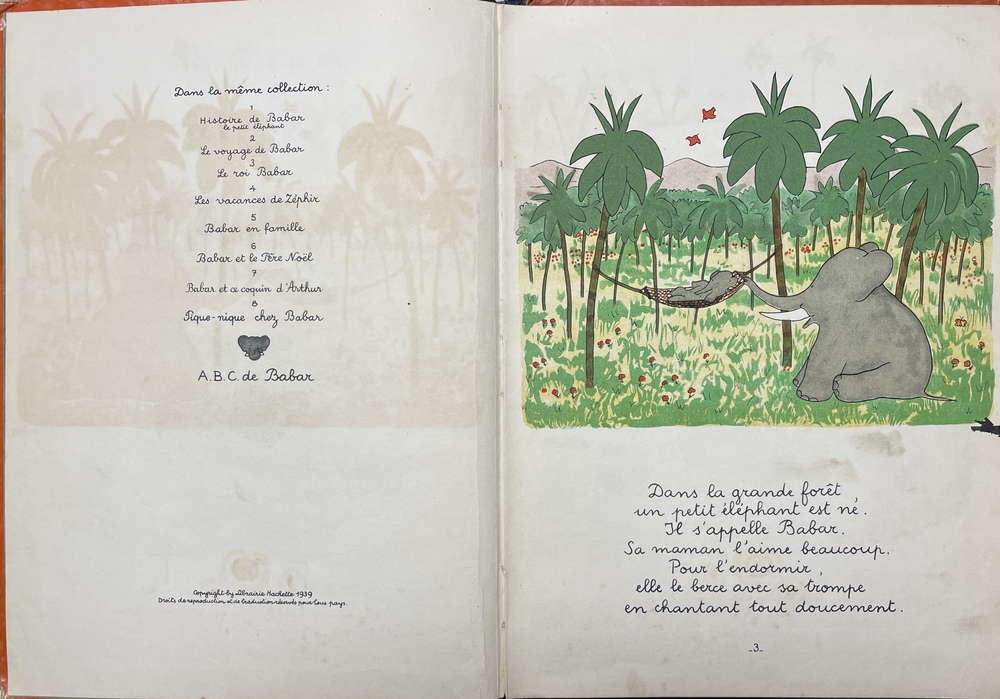 Dans la même collection :
1
Histoire de Babar
le petit éléphant
2
Le voyage de Babar
3
Le roi Babar
4
Les vacances de Zéphir
5
Babar en famille
6
Babar et le Père Noël
7
Babar et ce coquin d'Arthur
8
Pique-nique chez Babar
A.B.C. de Babar
Copyright by Librairie Hachette 1939
Droits de reproduction et de traduction réservés pour tous pays.
Dans la grande forêt,
un petit éléphant est né.
Il s'appelle Babar.
Sa maman l'aime beaucoup.
Pour l'endormir,
elle le berce avec sa trompe
en chantant tout doucement.
_3_